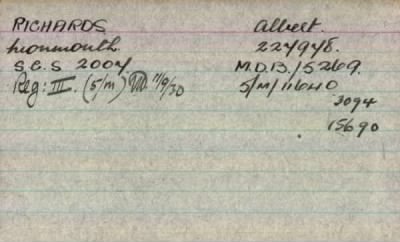 RICHARDS Albert
Monmouth. 227978.
S.C.S 2004 M.D.B./5269.
Reg: III. (5/M) 11/9/30 5/M/11640
3094
15690